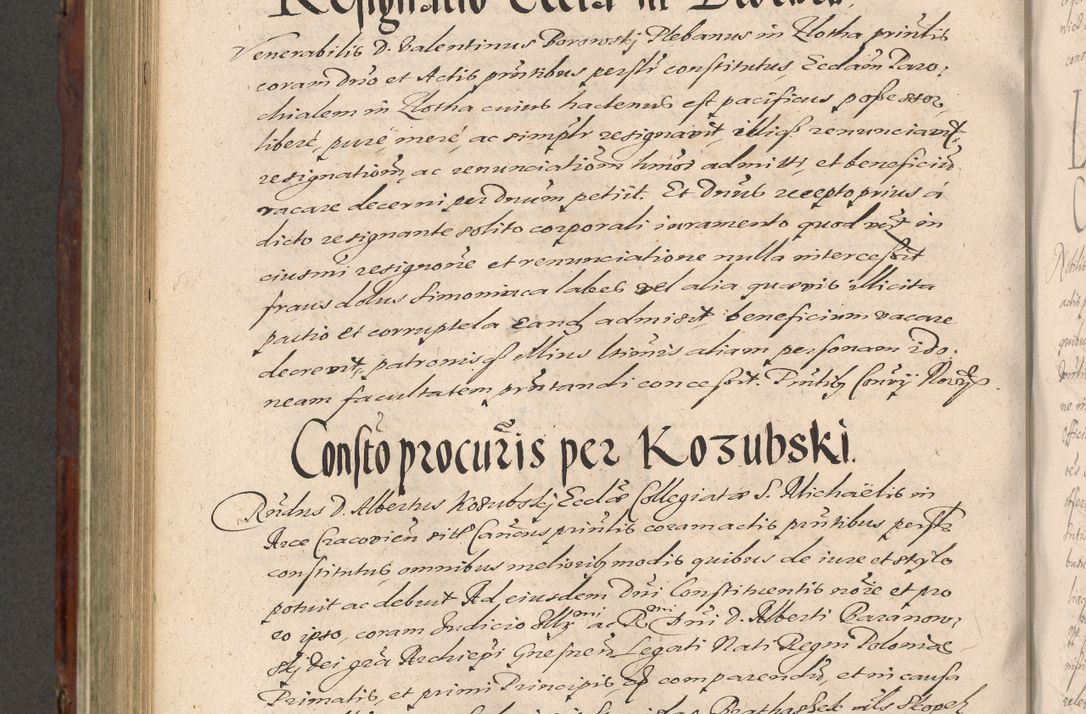 Resignatio Eccłæ in
Venerabilis D. Valentinus Borowskj Plebanus in Zlotha prińlis
coram Dńo et Actis prńtibus persłr constitutus, Ecclām Paro,
chialem in Zlotha cuius hactenus est pacificus possessor,
liberè, purè, merè, ac simplr resignavit, illiq3 renunciavit,
resignationm̃, ac renunciationm̃ hmo̅i admitti, et beneficiũ
vacare decerni per Dnum petiit. Et Dnus recepto prius á
dicto resignante solito corporali iuramento quod in
eiusmi resignorie et renunciatione nulla intercessit
fraus dolus Simoniaca labes vel alia quævis illicita
pactio et corruptela eand admisit, beneficium vacare
decrevit, patronis q3 illius ltimis aliam personam ido,
neam facultatem prńtandi concessit. Prńtib3
Consto procuris per Kozubski.
Rńdus D. Albertus Kozubskj Ecclæ Collegiatæ S. Michaëlis in
Arce Cracovień Cańcus prińlis coram actis prńtibus persłr
constitutus, omnibus melioribus modis quibus de iure et stylo
potuit ac debuit Ad eiusdem Dńi Constituentis nõie et pro
eo ipso, coram Iudicio Illmi ac Rmi Dńi D. Alberti Baranow,
skj Dei grã Archiepi Gnesneń Legati Nati Regni Poloniæ
Primatis, et primi Principis, comparendũ, et in causa